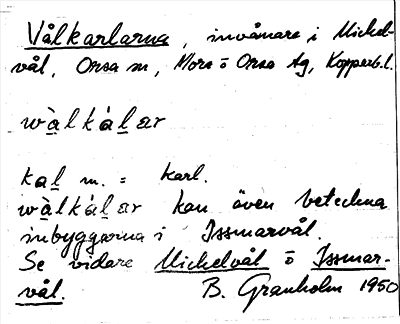 Vålkarlarna, invånare i Mickel-
vål, Orsa sn, Mora o Orsa tg, Kopparb. l.
wàlkálar
kal m. = karl.
wàlkálar kan även beteckna
inbyggarna i Issmarvål.
Se vidare Mickelvål o Issmar-
vål. B. Granholm 1950